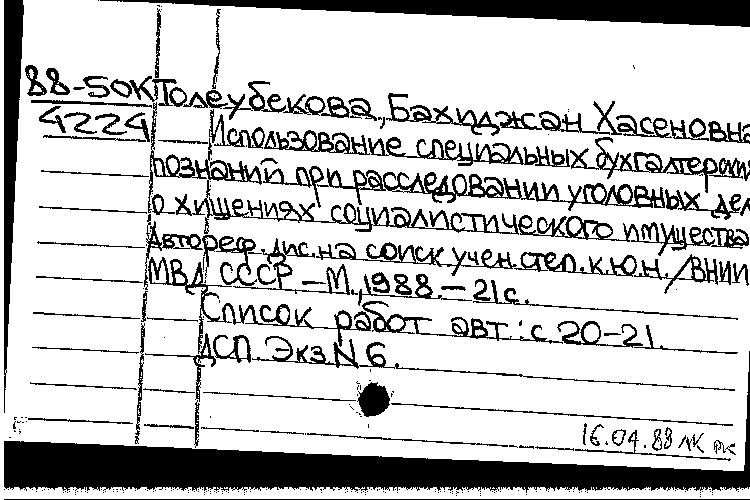 88-50К Толеубекова, Бахиджан Хасеновна
4224 Использование специальных бухгалтерских
познаний при расследовании уголовных дел
о хищениях социалистического имущества
Автореф. дис. на соиск. учен. степ. к.ю.н. / ВНИИ
МВД СССР. – М., 1988. – 21 с.
Список работ авт.: с. 20-21.
ДСП. Экз. N 6.
16.04.88